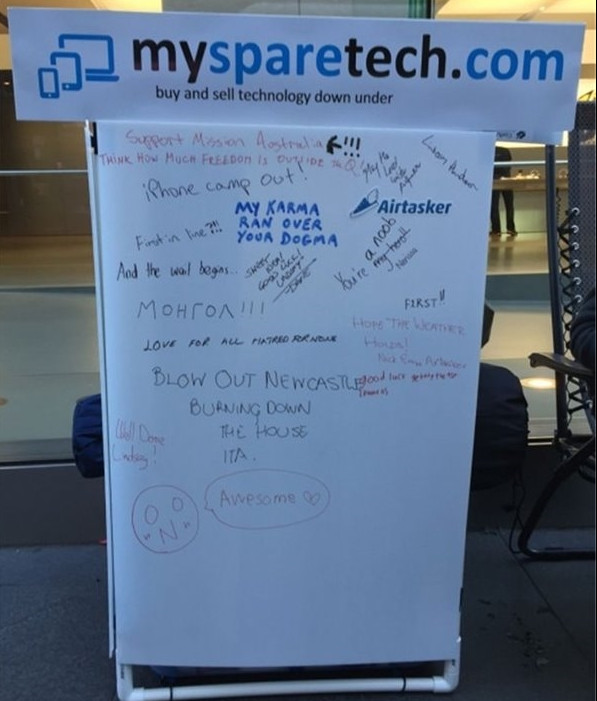 mysparetech.com
buy and sell technology down under
Support Mission Australia !!!
THINK HOW MUCH FREEDOM IS OUTSIDE THE Q!
iPhone camp out!
MY KARMA
RAN OVER
YOUR DOGMA
Airtasker
First in line?!!
And the wait begins..
GOOD LUCK!
You're a noob
my troll
МОНГОЛ!!!
FIRST!!
LOVE FOR ALL HATRED FOR NONE
HOPE THE WEATHER
Holds!
Nick From Airtasker
BLOW OUT NEWCASTLE
good luck
BURNING DOWN
THE HOUSE
ITA.
Well Done
Lindsay!
Awesome ♡
O O
N